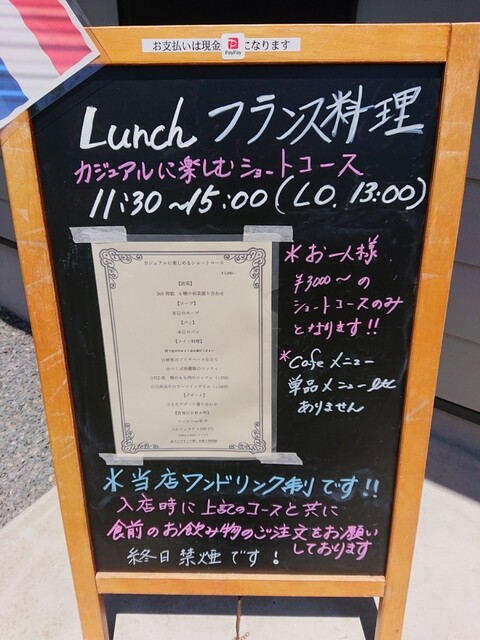 お支払いは現金 PayPay になります
Lunch フランス料理
カジュアルに楽しむショートコース
11:30～15:00(LO. 13:00)
カジュアルに楽しめるショートコース
【前菜】
【スープ】
本日のスープ
【パン】
本日のパン
【メイン料理】
【デザート】
＊お一人様
¥3000～の
ショートコースのみ
となります!!
*Cafeメニュー
単品メニューetc
ありません
＊当店ワンドリンク制です!!
入店時に上記のコースと共に
食前のお飲み物のご注文をお願い
しております
終日禁煙です!